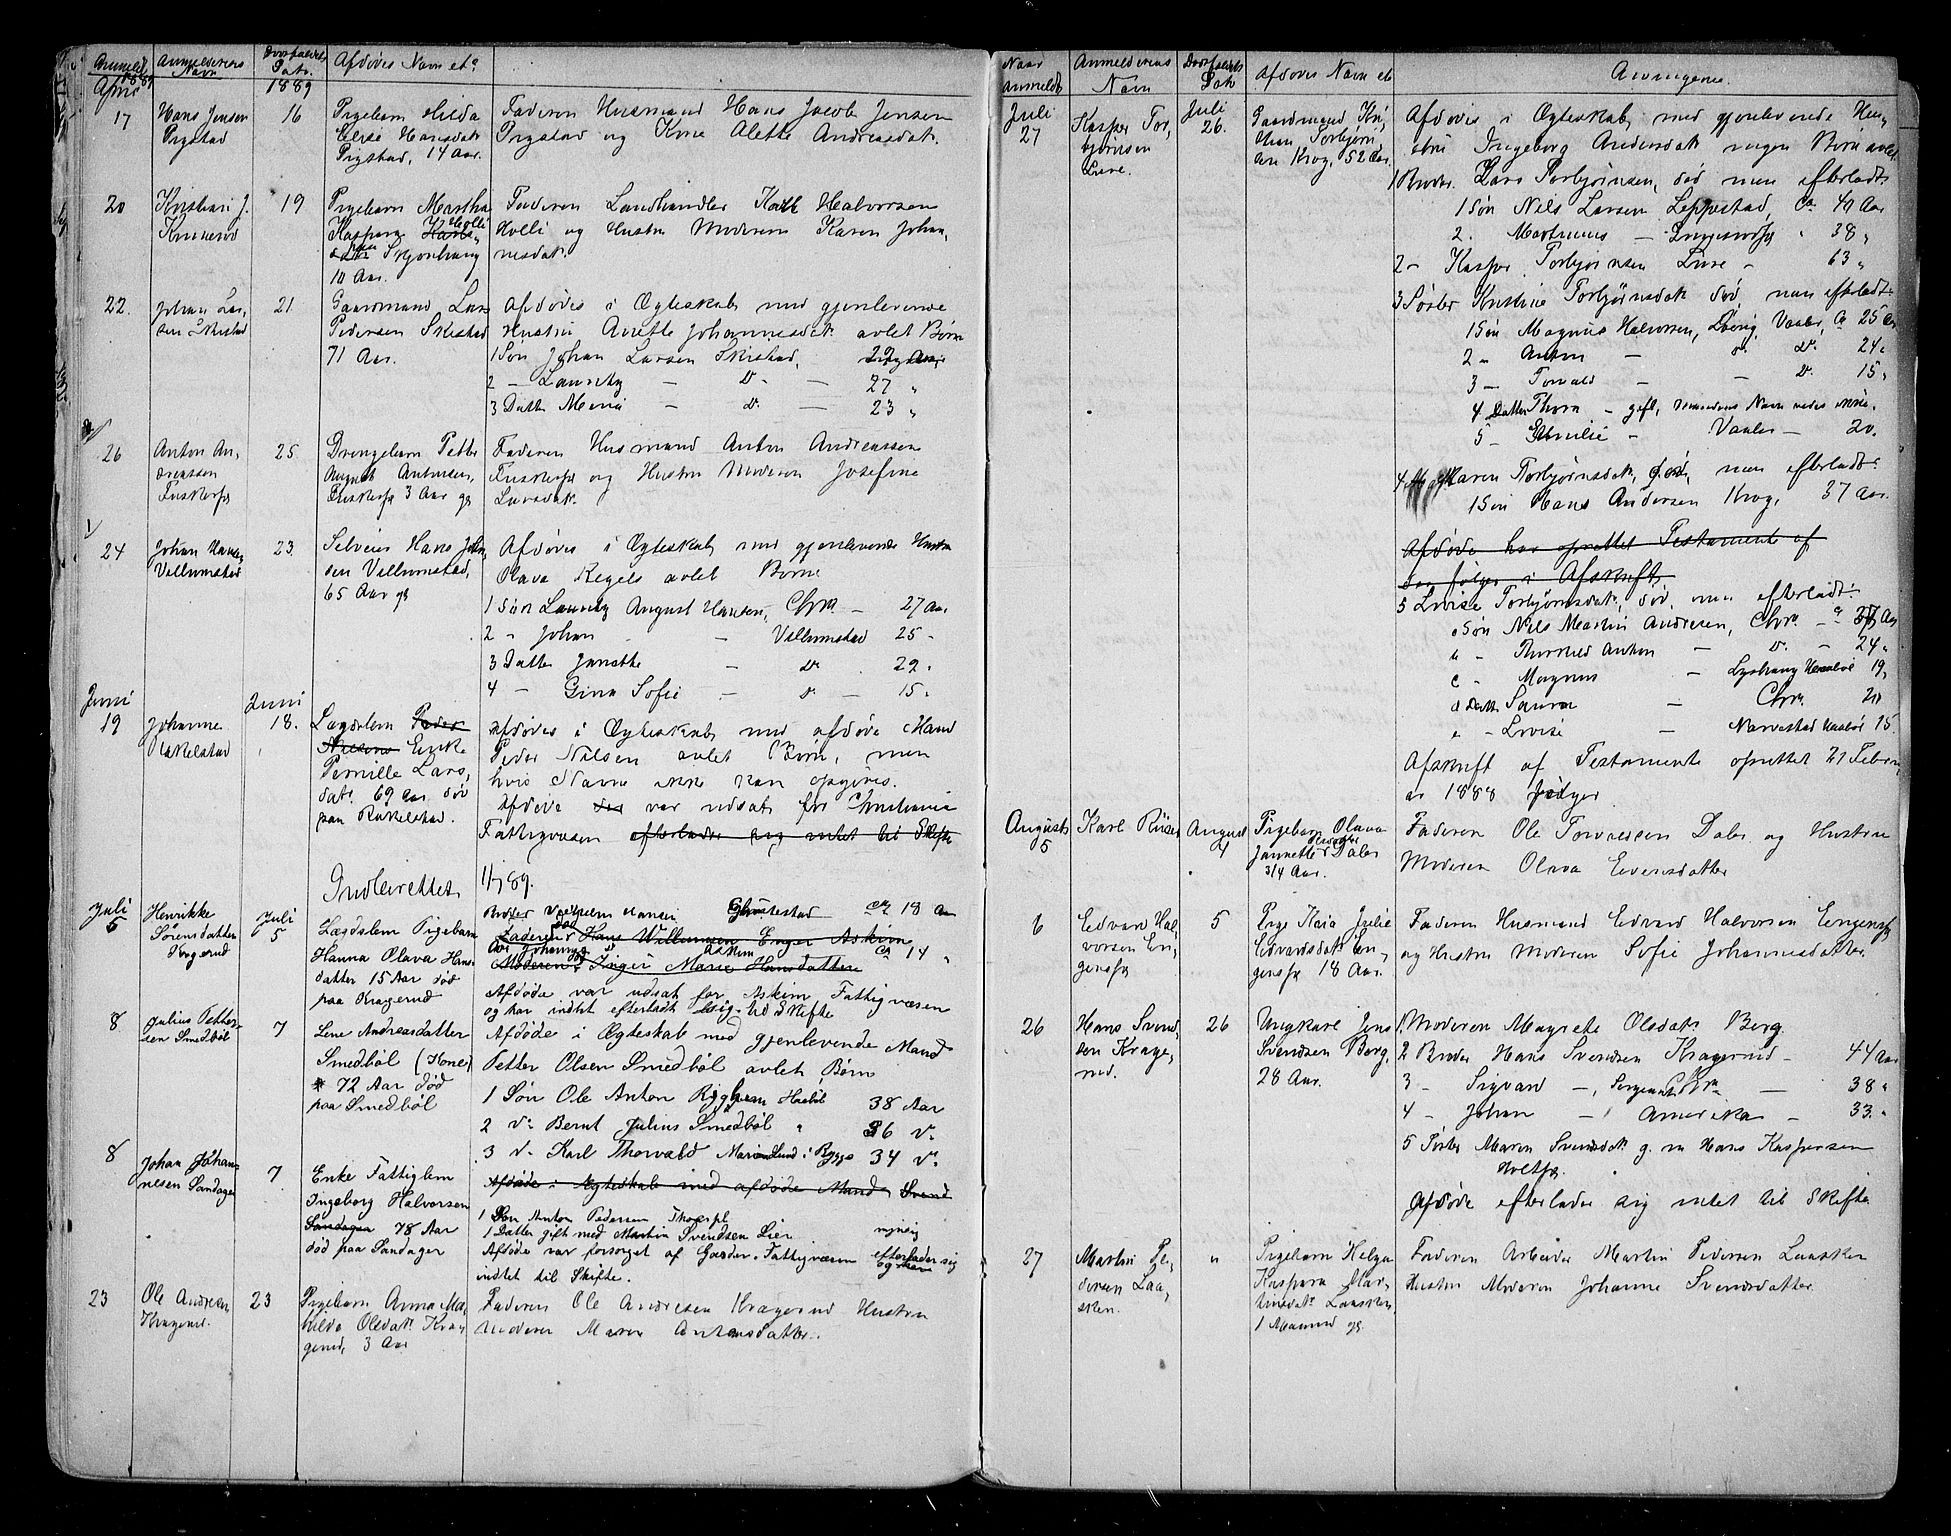 Anmeldt 1889
Anmelderens Navn
Dødsfaldets Dato 1889
Afdødes Navn etc
April
17
Hans Jensen
Pigstad
16
Pigebarn Hilda
Hansdatr
Pigstad, 14 Aar.
Faderen Husmand Hans Jacob Jensen
Pigstad og Kone Alette Andreasdatr.
20
Kristian J.
Knnerød
19
Pigebarn Martha
Kaspara Holli
Skjønhaug
10 Aar.
Faderen Landhandler Karl Halvorsen
Holli og Hustru Moderen Karen Johan,
nesdatr.
22.
Johan Lar,
sen Skistad
21.
Gaardmand Lars
Pedersen Skistad
71 Aar.
Afdødes i Ægteskab med gjenlevende
Hustru Anette Johannesdatr avlet Børn
1 Søn Johan Larsen Skistad,
2 — Lauritz — Do — 27 "
3 Datter Maria — Do — 23 "
26
Anton An,
dreassen
25.
Drengebarn Petter
August Antonsen,
3 Aar gl
Faderen Husmand Anton Andreassen
og Hustru Moderen Josefine
Larsdatr.
24
Johan Hansen
Villumstad
23.
Selveier Hans Johan,
sen Villumstad,
65 Aar gl
Afdødes i Ægteskab med gjenlevende Hustru
Olava Regels avlet Børn
1 Søn Lauritz August Hansen, Chra — 27 Aar
2 " Johan — Villumstad 25 "
3 Datter Janette — Do 22 "
4 — Gina Sofie — Do — 15 "
Juni
19
Johanne
Rakelstad
Juni
18.
Lægdslem Peder
Nilsens Enke
Pernille Lars,
datr. 69 Aar død
paa Rakelstad.
Afdødes i Ægteskab med afdøde Mand
Peder Nilsen avlet Børn, men
hvis Navne ikke kan opgives.
Afdøde var udsat for Christiania
Fattigvæsen efterlader sig intet til Skifte
Indberettet 1/7 89.
Juli
5
Henrikke
Sørensdatter
Kragerud
Juli
5
Lægdslem Pigebarn
Hanna Olava Hans
datter 15 Aar død
paa Kragerud
Broder Vilhelm Hansen ca 18 Aar
Faderen Hans Willumsen Enger Askim
Askim ca 14 "
Moderen Inger Marie Hansdatter
Afdøde var udsat for Askim Fattigvæsen
og har intet efterladt sig til Skifte
8
Julius Petter-
sen Smedbøl
7
Lene Andreasdatter
Smedbøl (Kone)
72 Aar død
paa Smedbøl
Afdøde i Ægteskab med gjenlevende Mand
Petter Olsen Smedbøl avlet Børn
1 Søn Ole Anton 38 Aar
2 Do Bernt Julius Smedbøl " 36 Do
3 Do Karl Thorvald i Rygge 34 Do
8
Johan Johan-
nesen Sandager
7
Enke Fattiglem
Ingeborg Halvorsen
Sandager 78 Aar
død paa Sandager
Afdøde i Ægteskab med afdøde Mand Svend
1 Søn Anton Pedersen
1 Datter gift med Martin Svendsen Lier myndig
Afdøde var forsørget af Fattigvæsen efterlader sig
indtet til Skifte.
23
Ole Andresen
Kragerud.
23
Pigebarn Anna Ma,
thilde Olsdatr Kra,
gerud, 3 Aar
Faderen Ole Andresen Kragerud Hustru
Moderen Maren Antonsdatter.
Naar anmeldt
Anmelderens Navn
Dødsfaldets Dato
Afdødes Navn etc
Arvingerne.
Juli
27
Kasper Tor,
bjørnsen
Juli
26.
Gaardmand Kri,
stian Torbjørn,
sen Krog, 52 Aar.
Afdødes i Ægteskab med gjenlevende Hu,
stru Ingeborg Andersdatr ingen Børn avlet.
1 Broder Lars Torbjørnsen, død men efterladt
1 Søn Nils Larsen Leppestad, ca 40 Aar
2. Martinius — " 38 "
2 — Kasper Torbjørnsen — 63 "
3 Søster Kristine Torbjørnsdatr død, men efterladt
1 Søn Magnus Halvorsen, Vaaler, ca 25 Aar
2 — Anton — Do. Do. 24 "
3 — Torvald — — Do. 15 "
4 Datter Thora — gift, Mandens Navn vides ikke.
5 — Emilie — Vaaler — 20.
4 Karen Torbjørnsdatr, død, men efterladt
1 Søn Hans Andersen Krog, 37 Aar.
Afdøde har oprettet Testamente af
følger i Afskrift
5 Lovise Torbjørnsdatr, død, men efterladt
a Søn Nils Martin Andresen, Chra — Aar
b — Thorvald Anton — Do. — 24 "
c — Magnus — 19,
d Datter Laura — Chra 20
e — Lovise — 15
Afskrift af Testamente oprettet 21 Febru,
ar 1888 følger.
August
5
Karl
August
4
Pigebarn Olava
Jannette Olesdatter Daler
3/4 Aar.
Faderen Ole Torvaldsen Daler og Hustru
Moderen Olava Evensdatter
6
Edvard Hal,
vorsen En,
gensfj
5
Pige Kaia Julie
Edvardsdatr En,
gensfj 18 Aar.
Faderen Husmand Edvard Halvorsen Engensfj
og Hustru Moderen Sofie Johannesdatter.
26
Hans Svend,
sen Krage,
rud.
26
Ungkarl Jens
Svendsen Berg,
28 Aar.
1. Moderen Magrete Olsdatr Berg.
2 Broder Hans Svendsen Kragerud — 44 Aar
3 — Sigvard —, Sergeant Chra — 38 "
4 — Johan — i Amerika — 33. "
5 Søster Maren Svendsdatr g. m Hans Kaspersen
Afdøde efterlader sig intet til Skifte
27
Martin Pe,
dersen Laa,
sken.
"
Pigebarn Helga
Kaspara Mar,
tinsdatr Laasken
1 Maaned gl.
Faderen Arbeider Martin Pedersen Laasken
Hustru Moderen Johanne Svendsdatter.